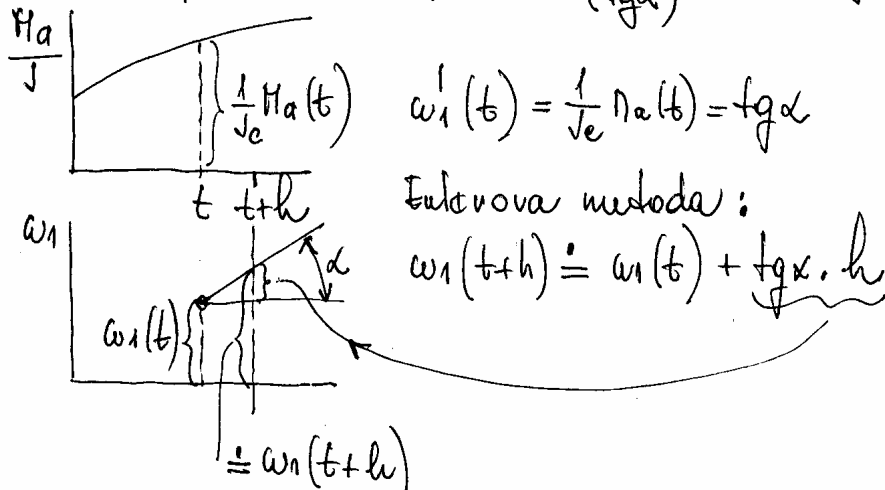 (tgα)
Ma/J
{ 1/Jc Ma(t)
ω1'(t) = 1/Jc Ma(t) = tgα
t t+h
Eulerova metoda :
ω1
α
ω1(t+h) ≐ ω1(t) + tgα . h
ω1(t)
≐ ω1(t+h)